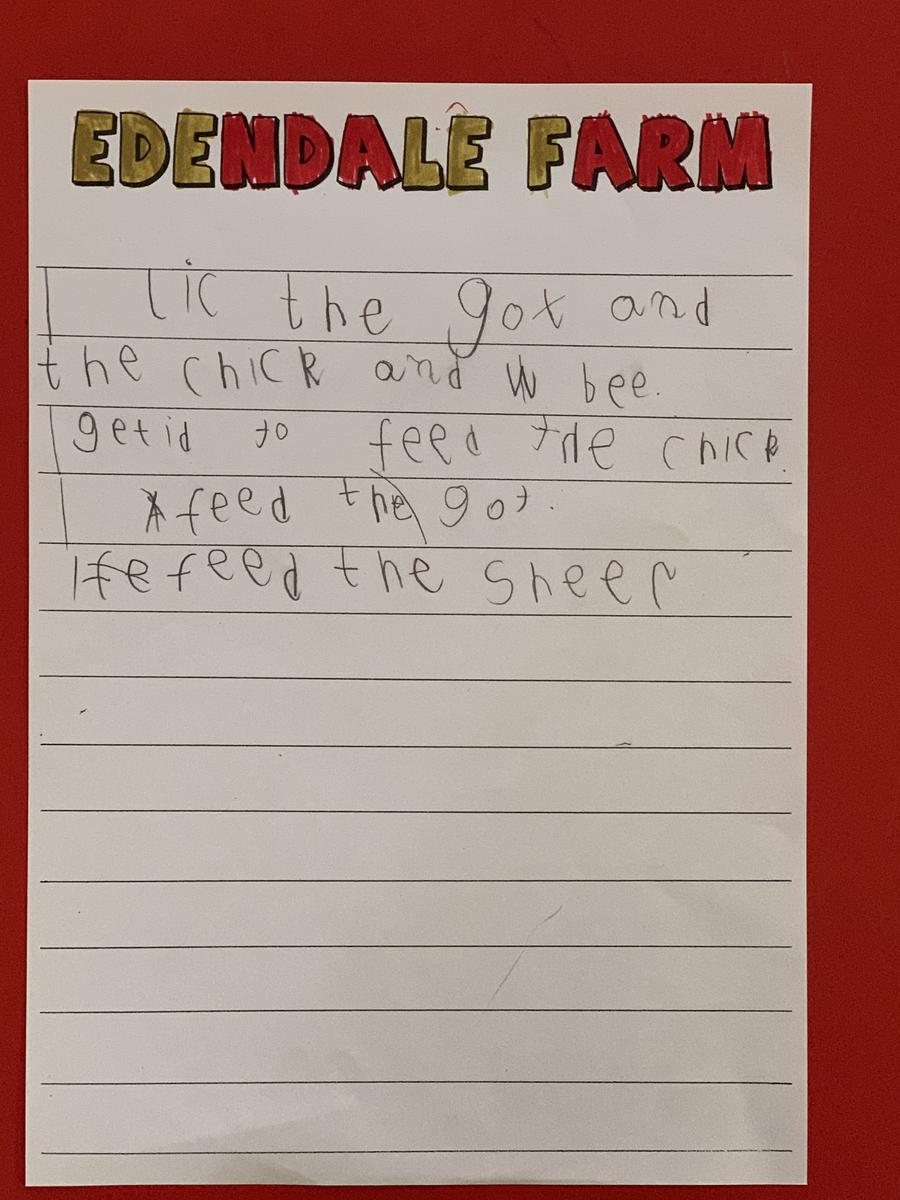 EDENDALE FARM
I lic the got and
the chick and bee.
I getid to feed the chick.
I feed the got.
I feed the sheep